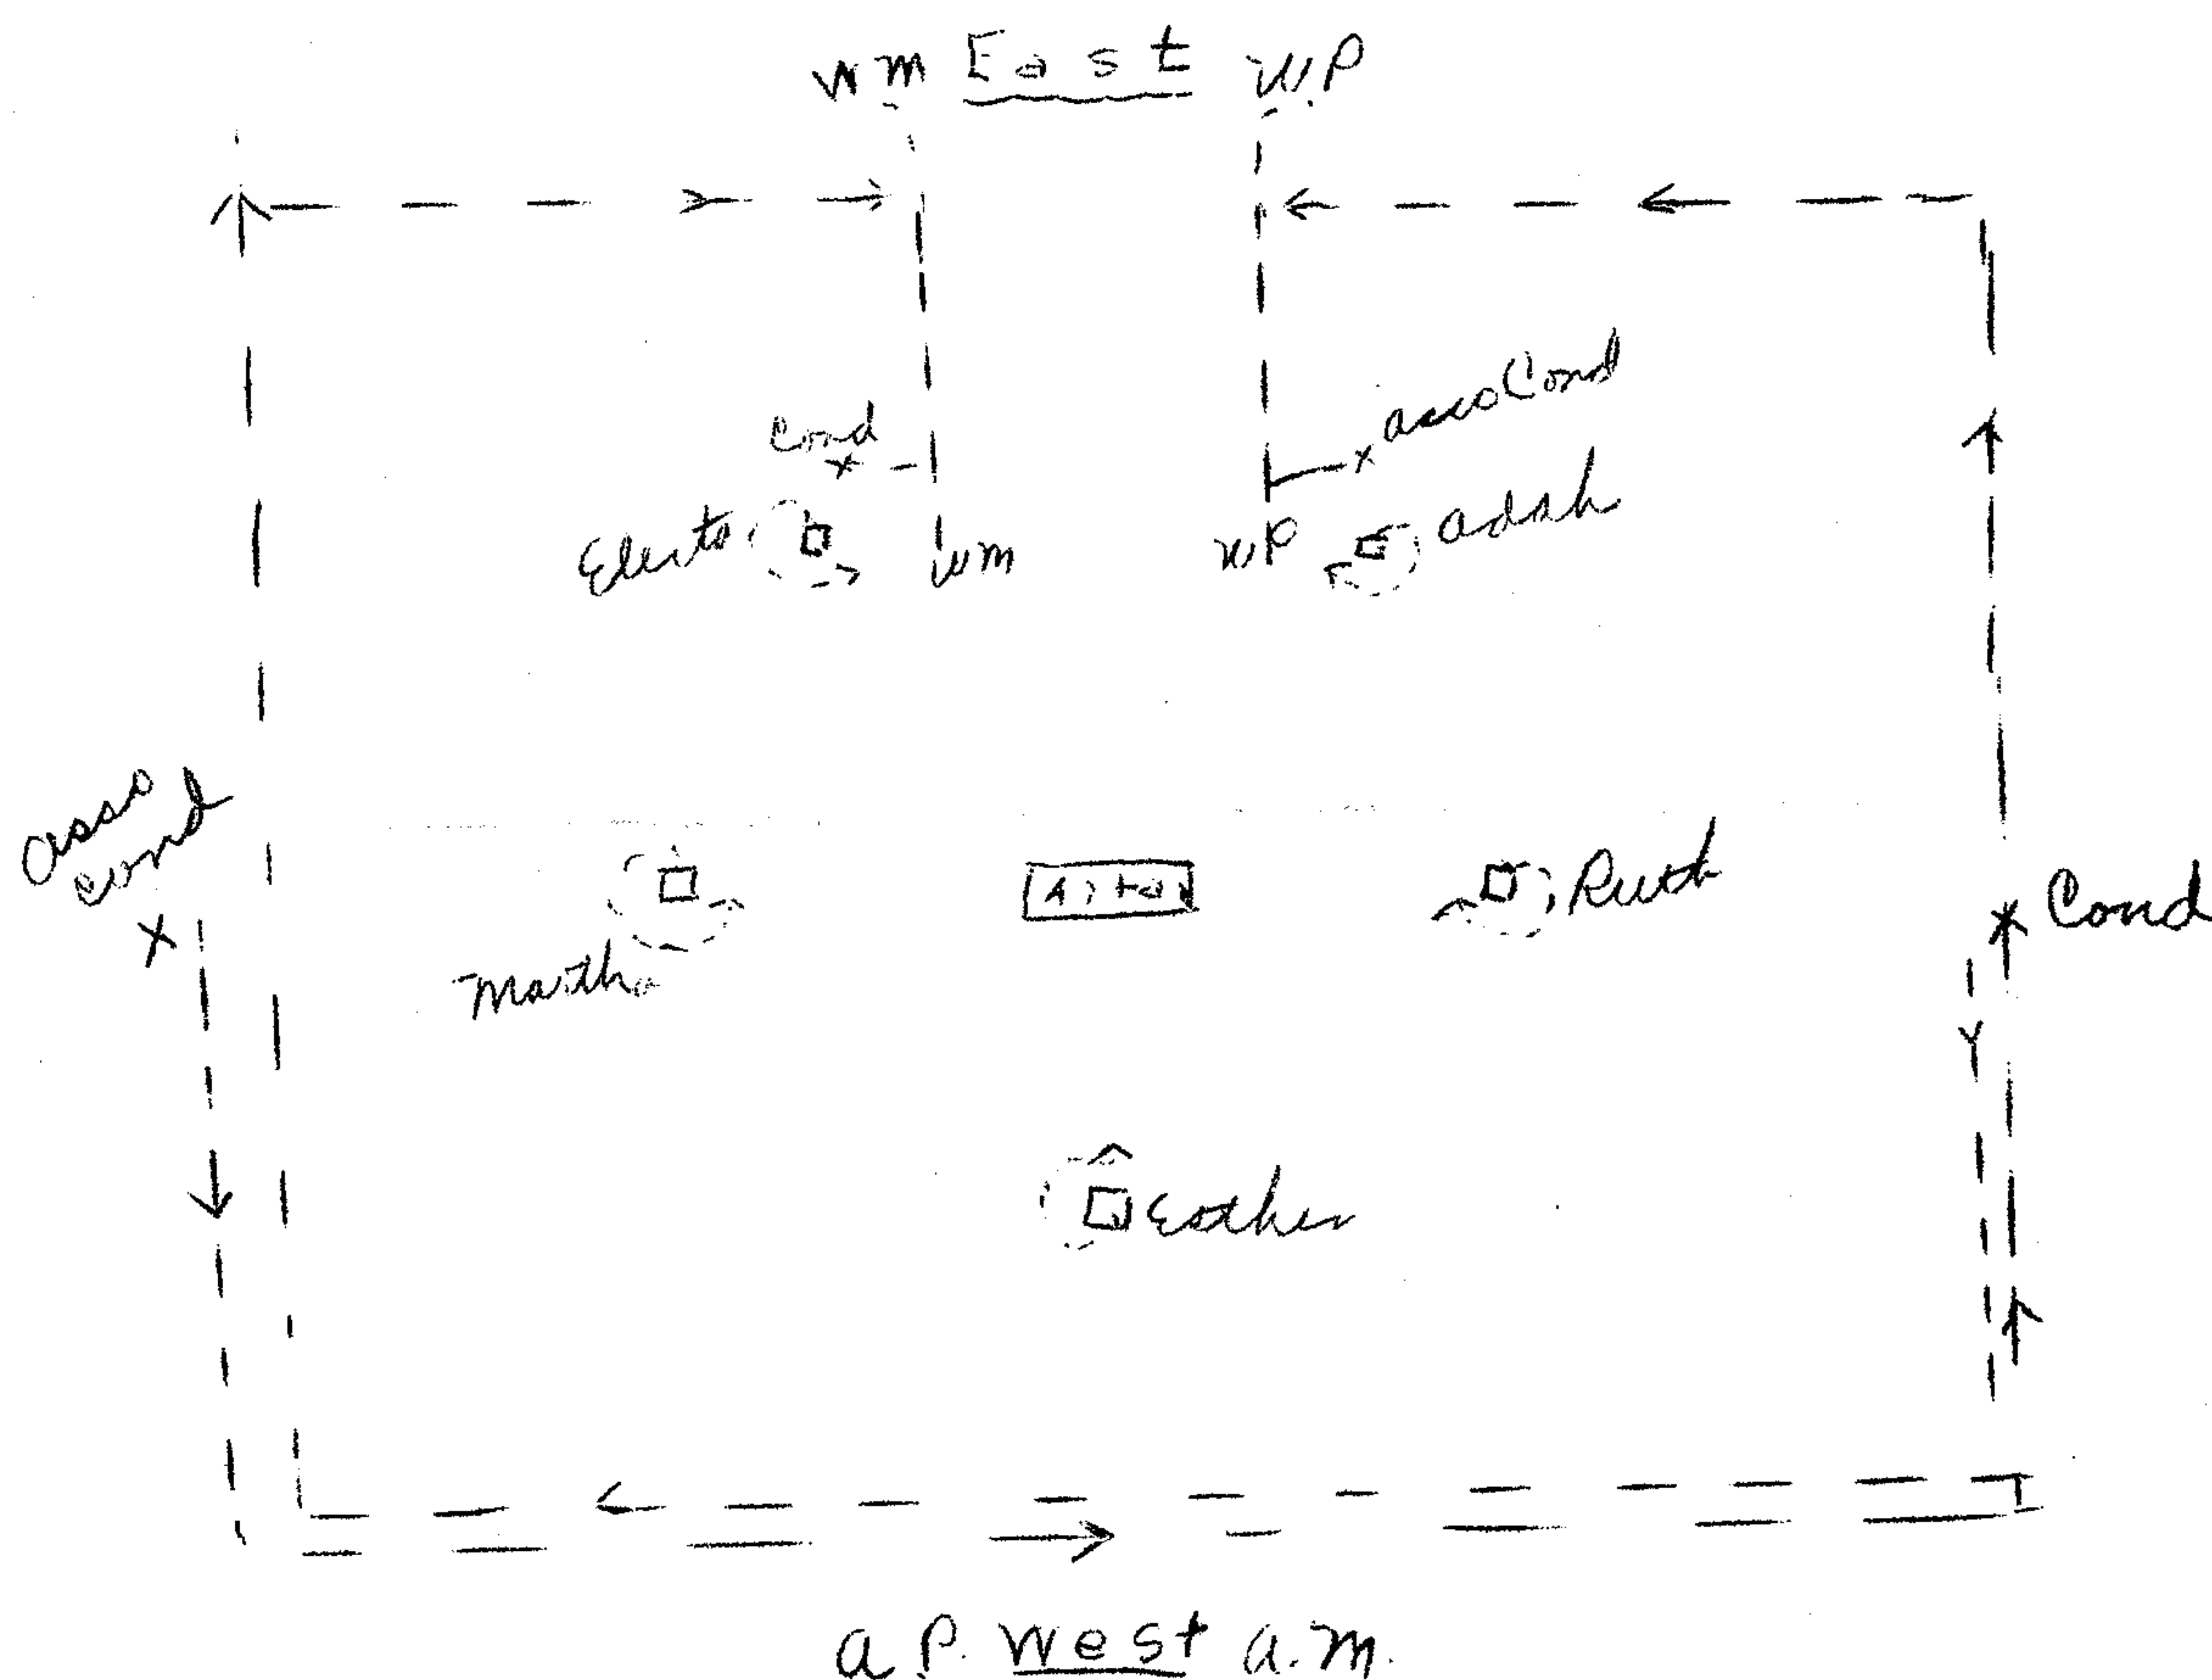 WM East W.P
Cond
asso Cond
Electa
WM
WP
adah
asso
cond
Altar
Ruth
Cond
Martha
Esther
a.P. West a.m.